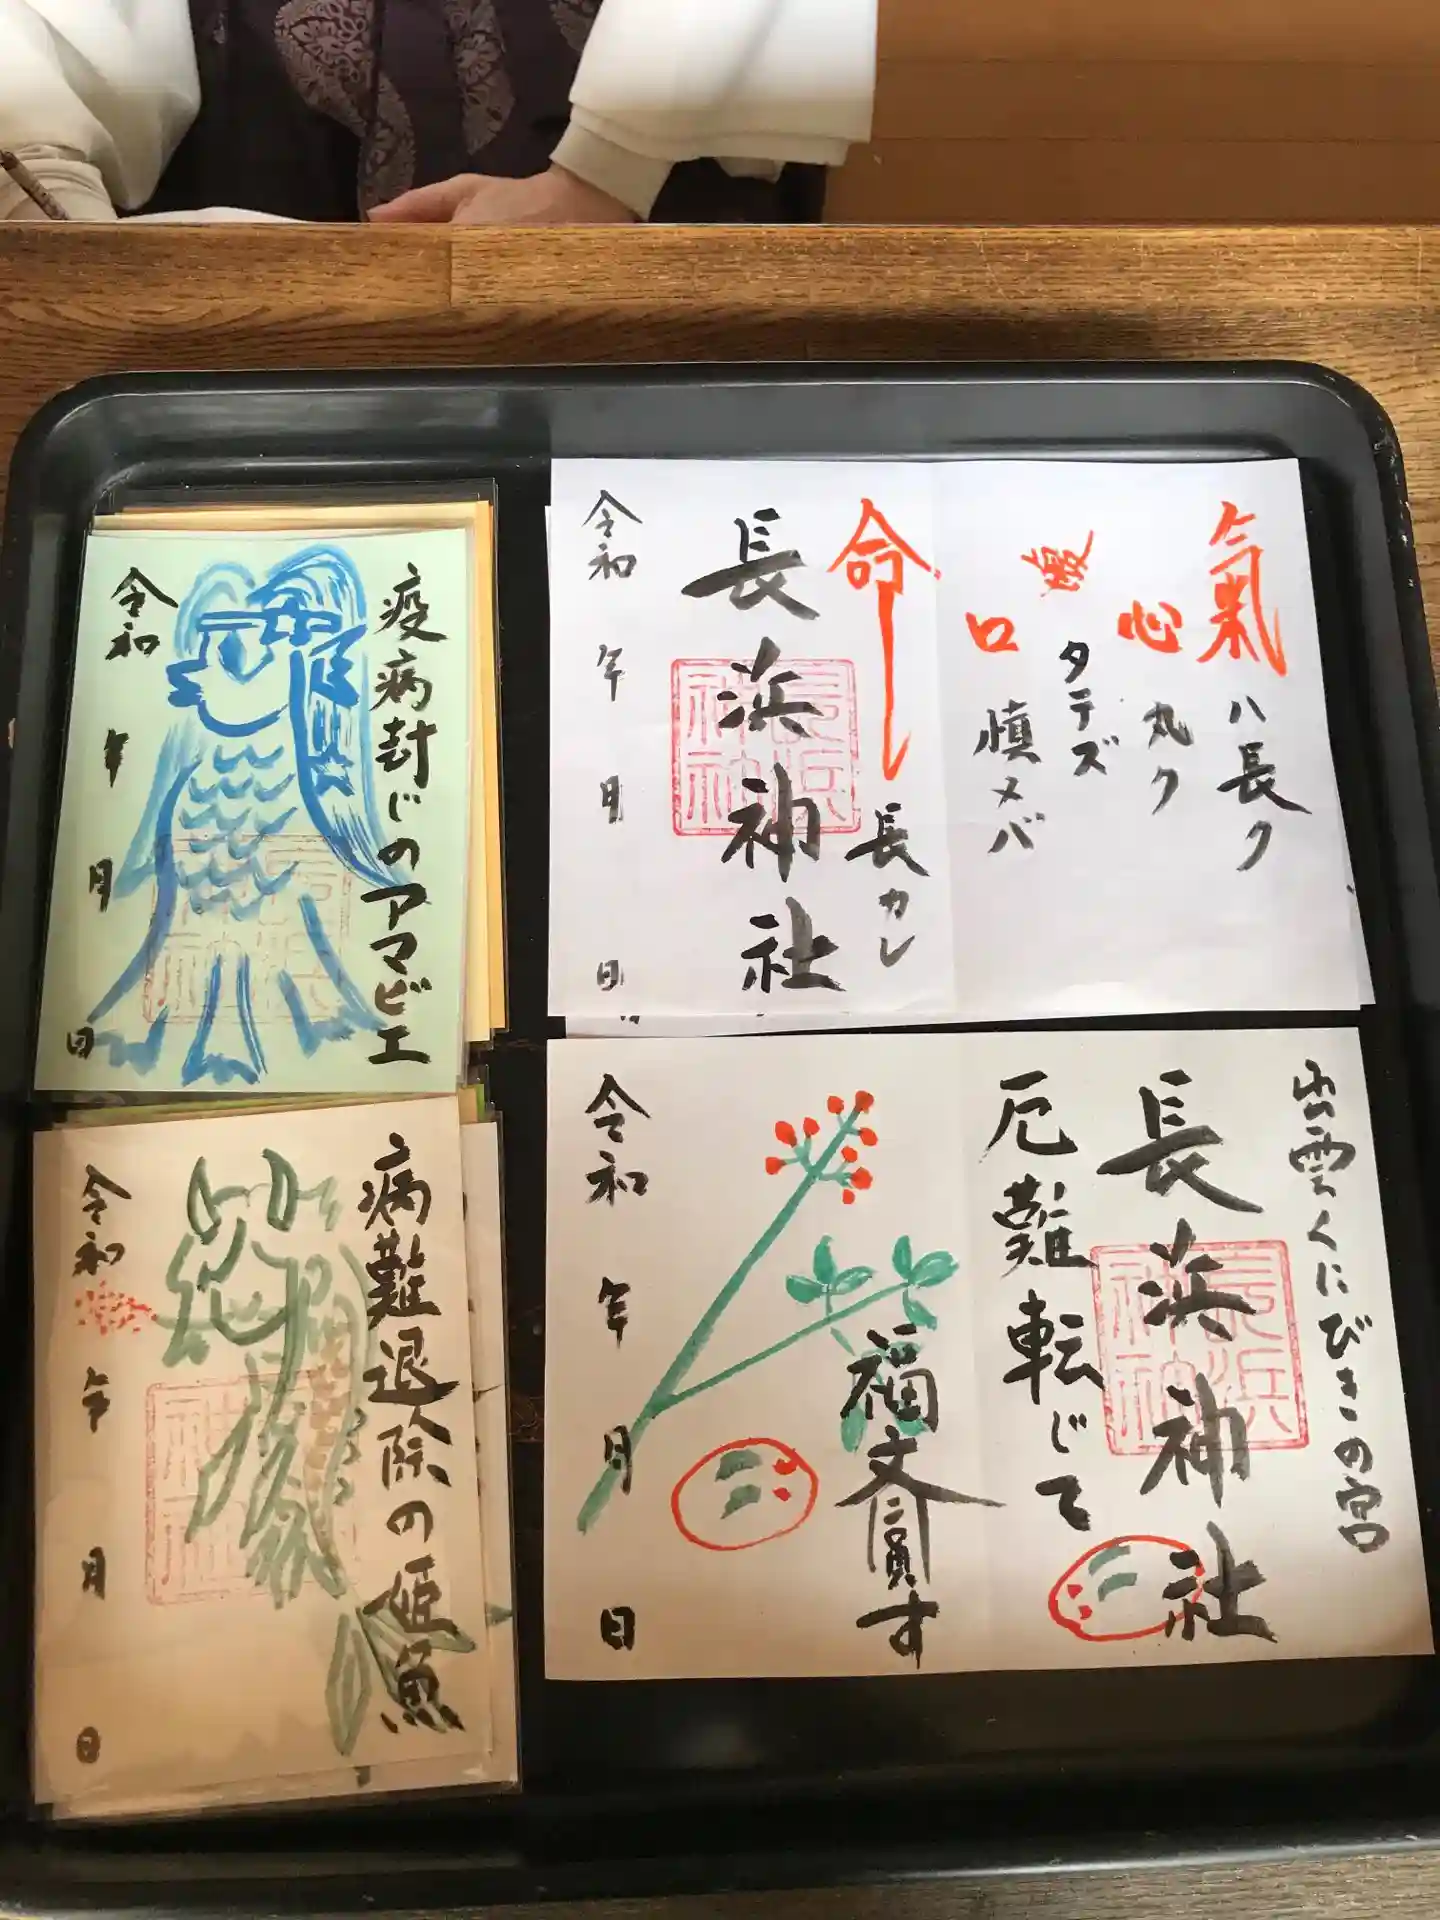 氣ハ長ク
心丸ク
タテズ
口慎メバ
命長カレ
長浜神社
令和 年 月 日
疫病封じのアマビエ
令和 年 月 日
出雲くにびきの宮
長浜神社
厄難転じて
福文圓す
令和 年 月 日
病難退除の姫魚
令和 年 月 日